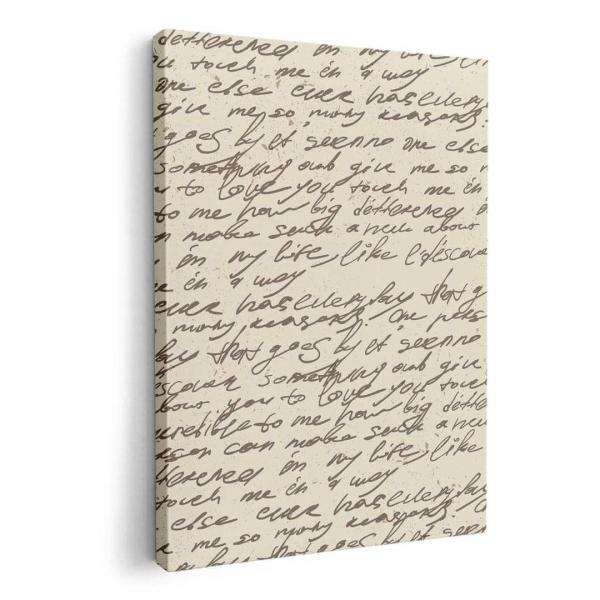 in my
u touch me in a way
one else ever has every day
give me so many reasons.
goes by it' seen no one else
something and give me so
to love you touch me in
to me how big detterened
make such a about
in my life, like i discove
in a way
ever has every day that go
many reasons. One pers
day that goes by it' seen no
scover something and give
bout you to love you touch
to me how big dette
rson can make such a
tterened in my life, like
touch me in a way
else ever has every day
me so many reasons.
that goes by it' seen